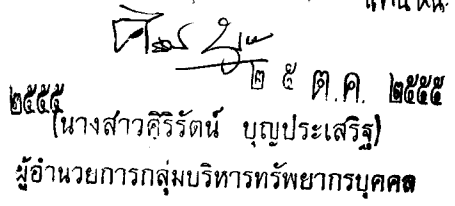 ๒ ๕ ต.ค. ๒๕๕๕
๒๕๕๕
(นางสาวศิริรัตน์ บุญประเสริฐ)
ผู้อำนวยการกลุ่มบริหารทรัพยากรบุคคล